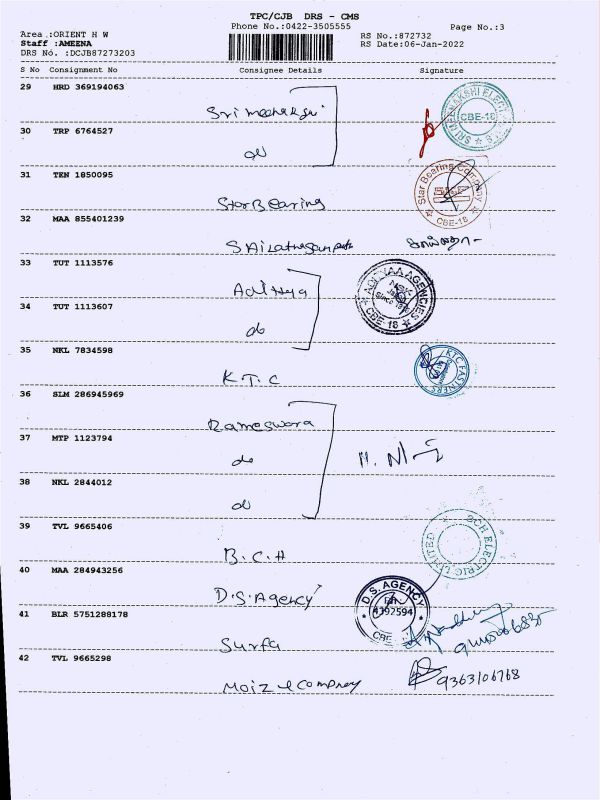 TPC/CJB DRS - CMS
Phone No.:0422-3505555
Page No.:3
Area :ORIENT H W
Staff :AMEENA
DRS No. :DCJB87273203
RS No.:872732
RS Date:06-Jan-2022
S No Consignment No Consignee Details Signature
29 HRD 369194063
Sri meenakshi
SRI MEENAKSHI ELECTRICALS CBE-18
30 TRP 6764527
do
31 TEN 1850095
Star Bearing
Star Bearing Company CBE-18
32 MAA 855401239
33 TUT 1113576
Adithya
AGENCIES CBE-18
34 TUT 1113607
do
35 NKL 7834598
K.T.C
KTC FASTNERS
36 SLM 286945969
Rameswara
37 MTP 1123794
do
38 NKL 2844012
do
39 TVL 9665406
B.C.H
BCH ELECTRIC LIMITED
40 MAA 284943256
D.S.Agency
D.S. AGENCY
4392594
CBE
41 BLR 5751288178
Surfa
42 TVL 9665298
Moiz & Company
9363106768